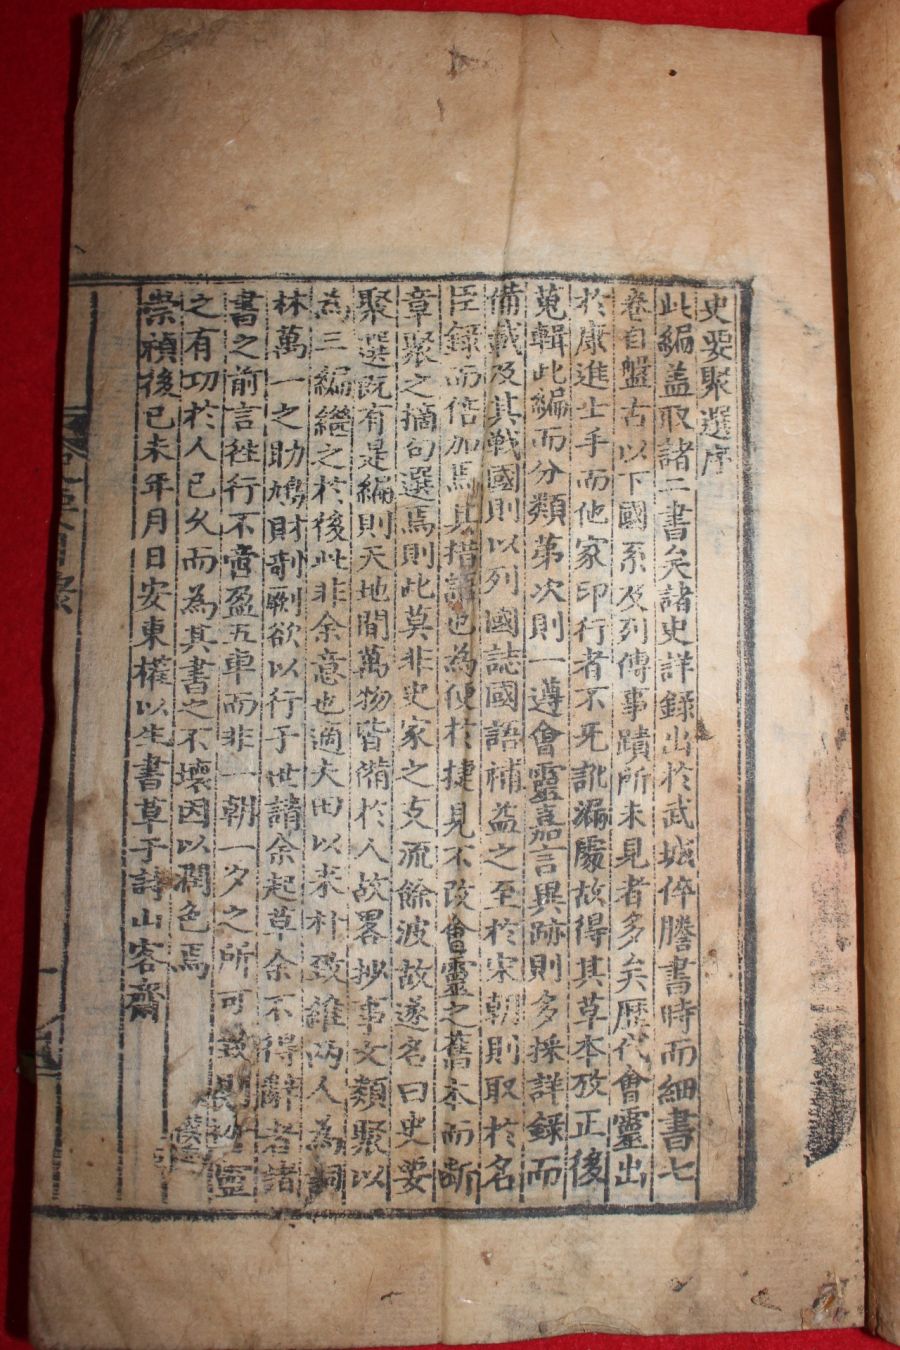 史要聚選序
此編盖取諸二書矣諸史詳錄出於武城倅謄書時而細書七
卷自盤古以下國系及列傳事蹟所未見者多矣歷代會靈出
於康進士手而他家印行者不免訛漏處故得其草本攷正後
蒐輯此編而分類第次則一遵會靈嘉言異跡則多採詳錄而
備載及其戰國則以列國誌國語補益之至於宋朝則取於名
臣錄而倍加焉且措語也為便於捷見不改會靈之舊本而斷
章聚之摘句選焉則此莫非史家之支流餘波故遂名曰史要
聚選旣有是編則天地間萬物皆備於人故畧抄事文類聚以
為三編繼之於後此非余意也適大田以來朴致維兩人為詞
林萬一之助鳩財剞劂欲以行于世請余起草余不得辭者諸
書之前言徃行不啻盈五車而非一朝一夕之所可 靈
之有功於人已久而為其書之不壞因以潤色焉
崇禎後己未年月日安東權以生書草于詩山客齋